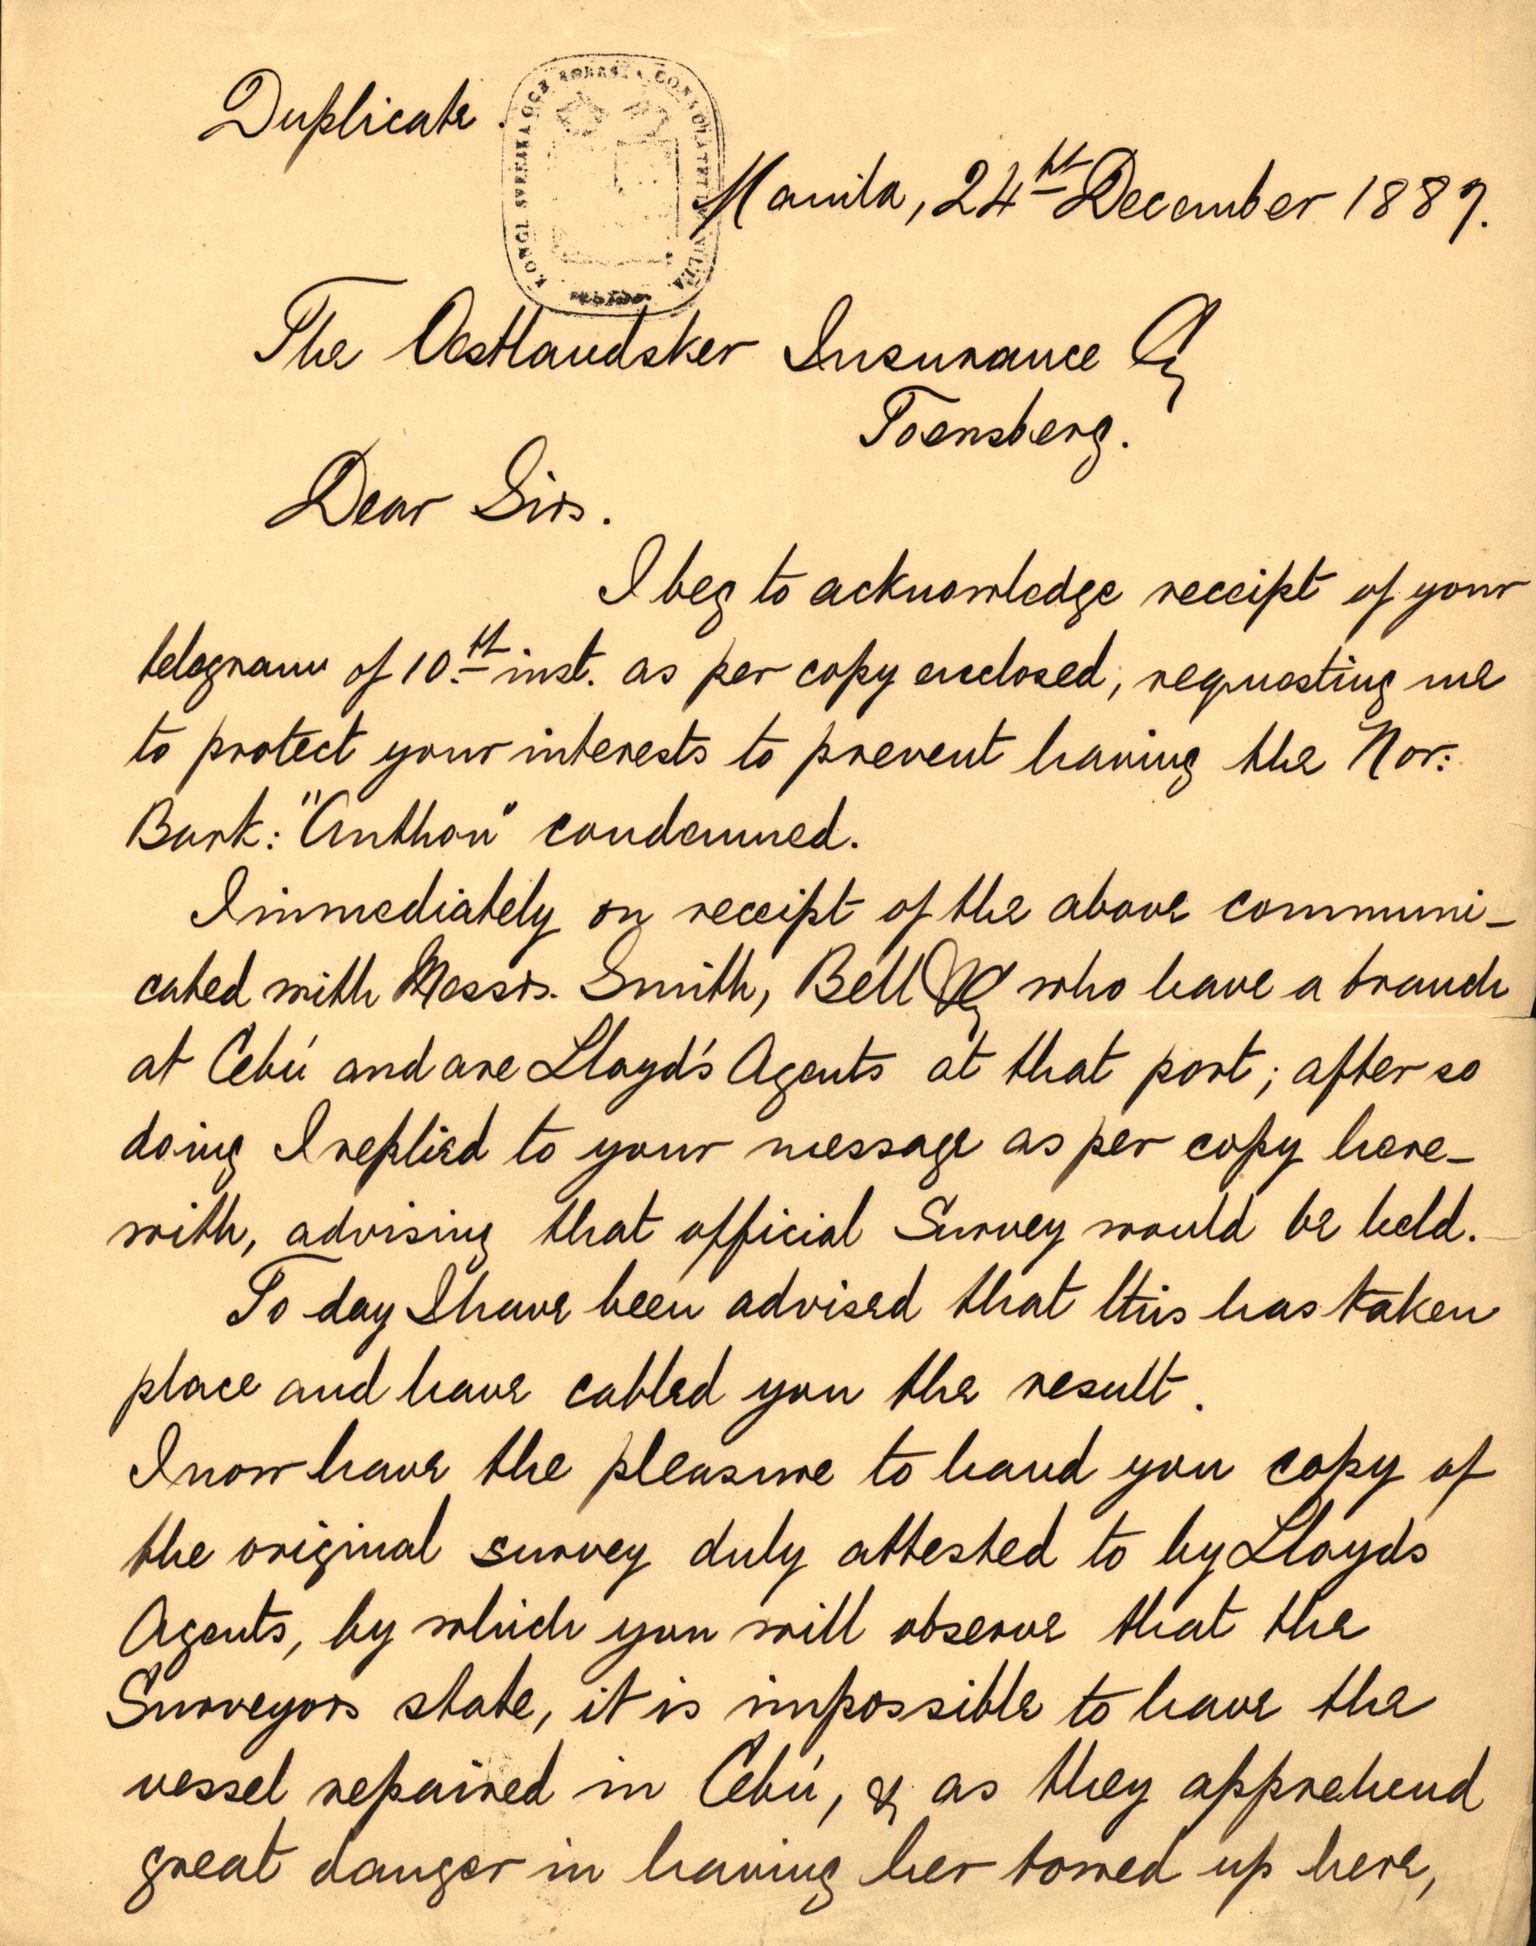 Duplicate.
KONGL. SVENSKA OCH NORSKA CONSULATET MANILLA
Manila, 24th December 1887.
The Oestlandsker Insurance Cy
Toensberg.
Dear Sirs.
I beg to acknowledge receipt of your
telegram of 10th inst. as per copy enclosed, requesting me
to protect your interests to prevent having the Nor:
Bark: "Anthon" condemned.
Immediately on receipt of the above communi-
cated with Messrs. Smith, Bell & Cy who have a branch
at Cebú and are Lloyd's Agents at that port; after so
doing I replied to your message as per copy here-
with, advising that official Survey would be held.
To day I have been advised that this has taken
place and have cabled you the result.
I now have the pleasure to hand you copy of
the original survey duly attested to by Lloyds
Agents, by which you will observe that the
Surveyors state, it is impossible to have the
vessel repaired in Cebú, & as they apprehend
great danger in having her towed up here,